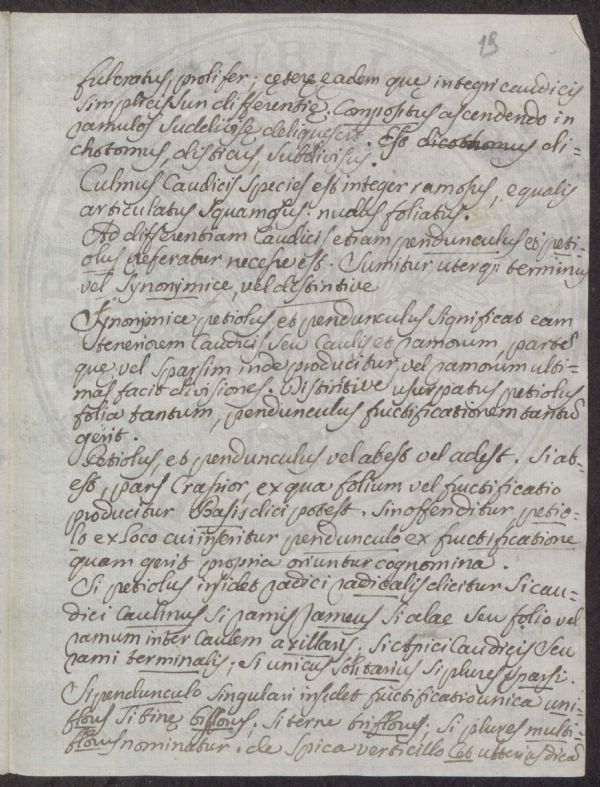 13
fulcratus, prolifer; cętere eadem que integri caudicis
simplicis sun differentię. Compositus ascendendo in
ramulos sudelivise deliquescit. Est dicothomus di=
chotomus, disticus, subdivisus.
Culmus Caudicis species est integer ramosus, equalis
articulatus squamosus: nudus foliatus.
Ad differentiam Caudicis etiam pendunculus et peti=
olus referatur necesse est. Sumitur uterq; terminus
vel synonimice, vel distintive
Synonimice petiolus et pendunculus significat eam
teneriorem Caudicis seu Caulis et ramorum, parte
que vel sparsim inde producitur, vel ramorum ulti=
mas facit divisiones. Distintive usurpatus petiolus
folia tantum, pendunculus fructificationem tantu
gerit.
Petiolus, et pendunculus vel abest vel adest. Si ab=
est, pars Crasior, ex qua folium vel fructificatio
producitur Basis dici potest. Sin offenditur, petio=
lo ex Loco cui inseritur pendunculo ex fructificatione
quam gerit propria oriuntur cognomina.
Si petiolus insidet radici radicalis dicitur Si cau=
dici Caulinus Si ramis rameus Si alae seu folio vel
ramum inter Caulem axillaris. Si apici Caudicis seu
rami terminalis; si unicus solitarius si plures sparsi.
Si pendunculo singulari insidet fructificatio unica uni=
florus Si bine biflorus; si terne triflorus; si plures multi=
florus nominatur. de spica verticillo et ulterius dica